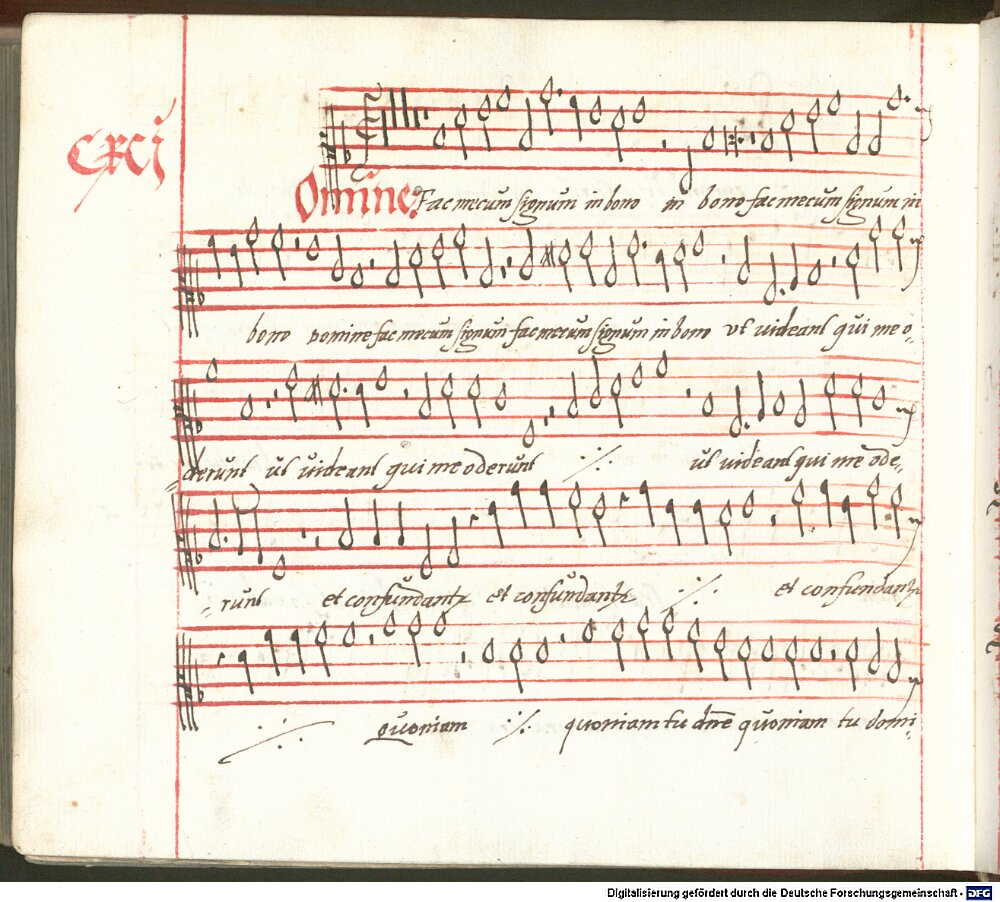 CXCI
Omine Fac mecum signum in bono in bono fac mecum signum in
bono Domine fac mecum signum fac mecum signum in bono ut videant qui me o=
=derunt ut videant qui me oderunt ·/. ut videant qui me ode=
=runt et confundantr et confundantr ·/. et confundantr
·/. quoniam ·/. quoniam tu dñe quoniam tu domi=
Digitalisierung gefördert durch die Deutsche Forschungsgemeinschaft - DFG